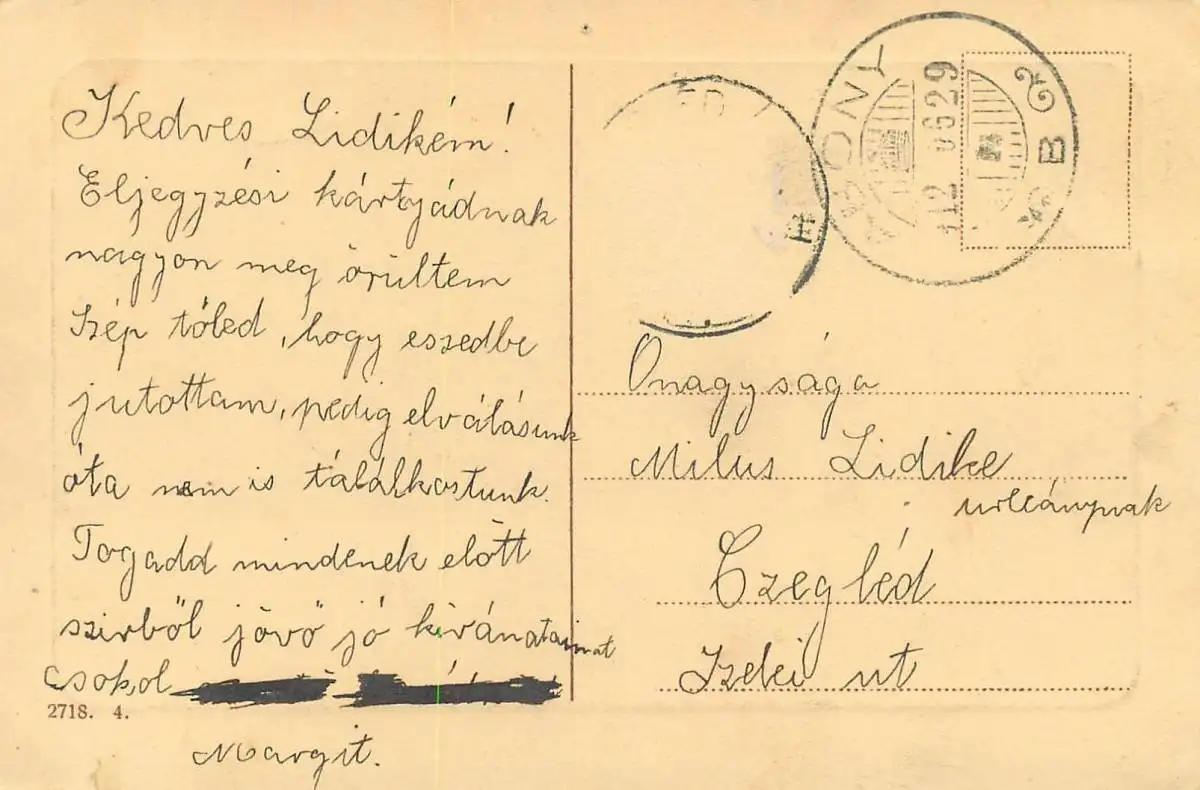 Kedves Lidikém!
Eljegyzési kártyádnak
nagyon meg örültem
Szép tőled, hogy eszedbe
jutottam, pedig elválásunk
óta nem is találkostunk.
Fogadd mindenek előtt
szivből jövő jó kivánataimat
csokol
Margit.
2718. 4.
ONY
912 0629
B
E
Onagysága
Milus Lidike
urleánynak
Czegléd
Izelei ut